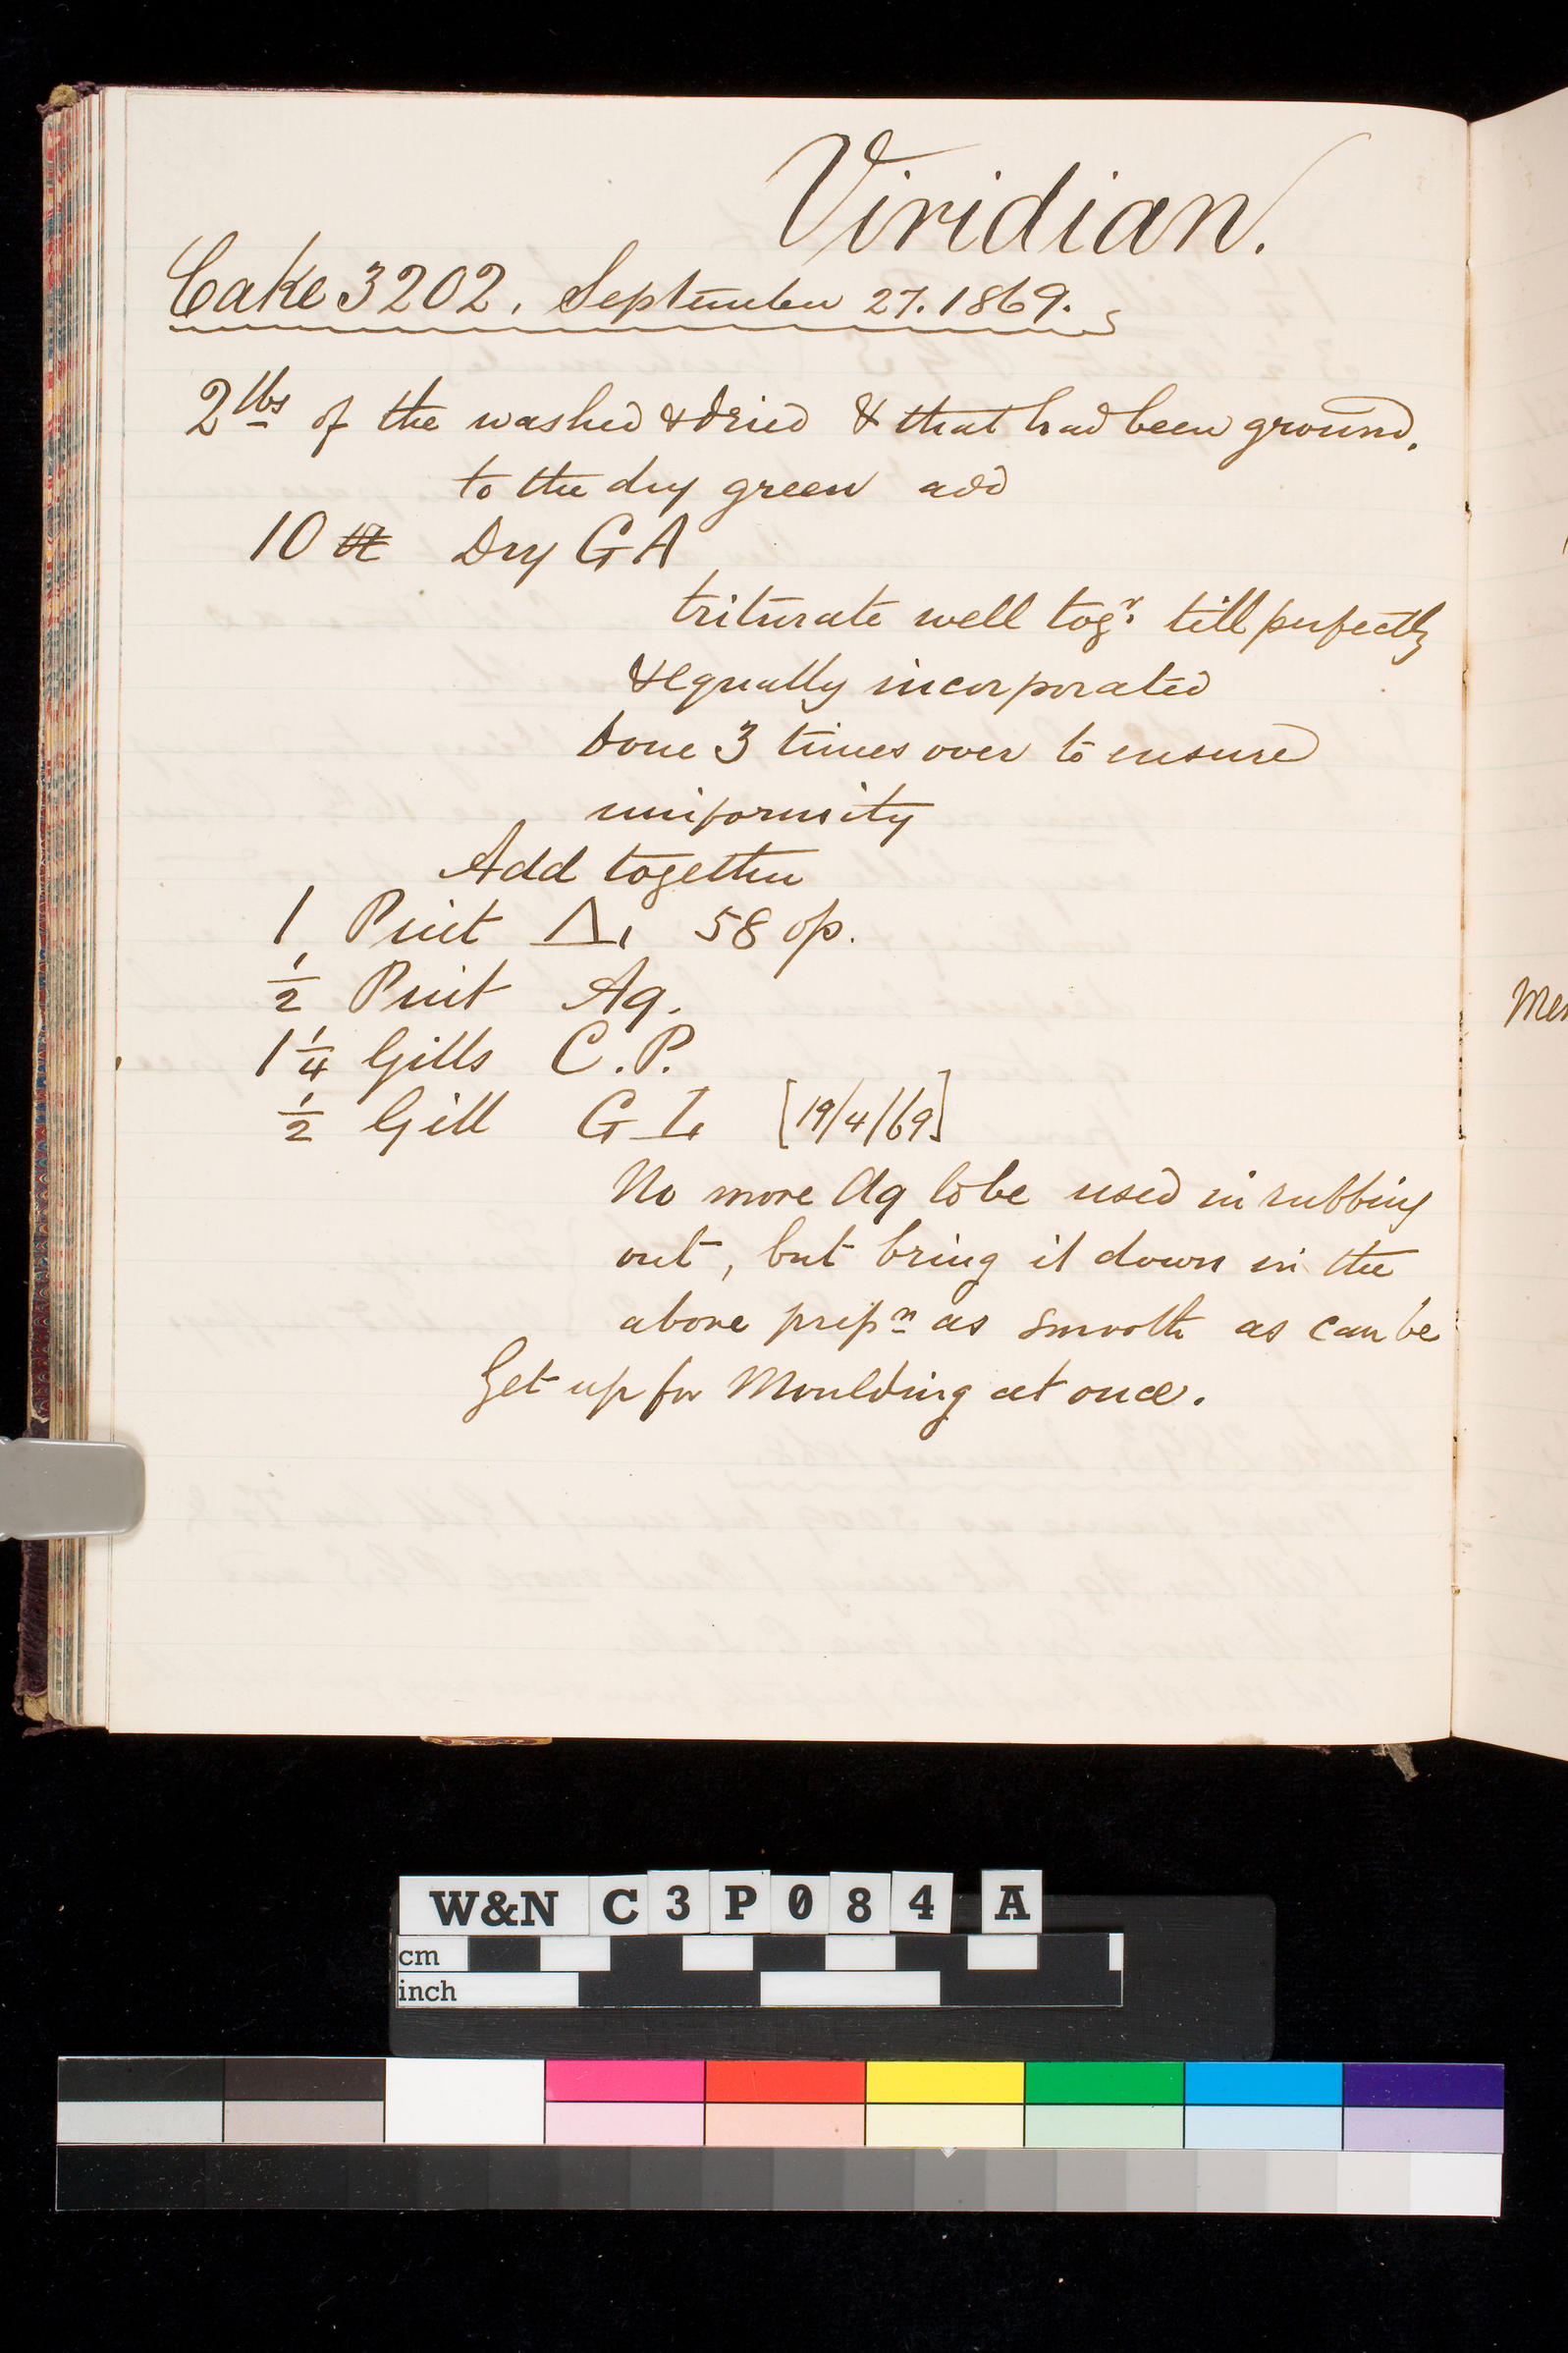 Viridian.
Cake 3202. September 27. 1869.
2 lbs of the washed & dried & that had been ground.
to the dry green add
10 Dry G A
triturate well togr. till perfectly
& equally incorporated
done 3 times over to ensure
uniformity
Add together
1 Pint 58 op.
1/2 Pint Aq.
1 1/4 Gills C.P.
1/2 Gill G I. [19/4/69]
No more Aq to be used in rubbing
out, but bring it down in the
above prepn as smooth as can be
Get up for Moulding at once.
W&N C3P084 A
cm
inch